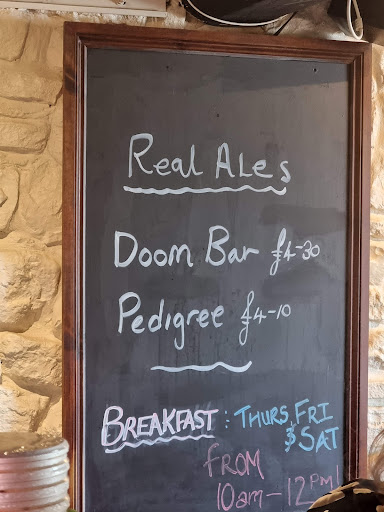 Real Ales
Doom Bar £4-30
Pedigree £4-10
BREAKFAST: THURS, FRI
& SAT
FROM
10am-12pm